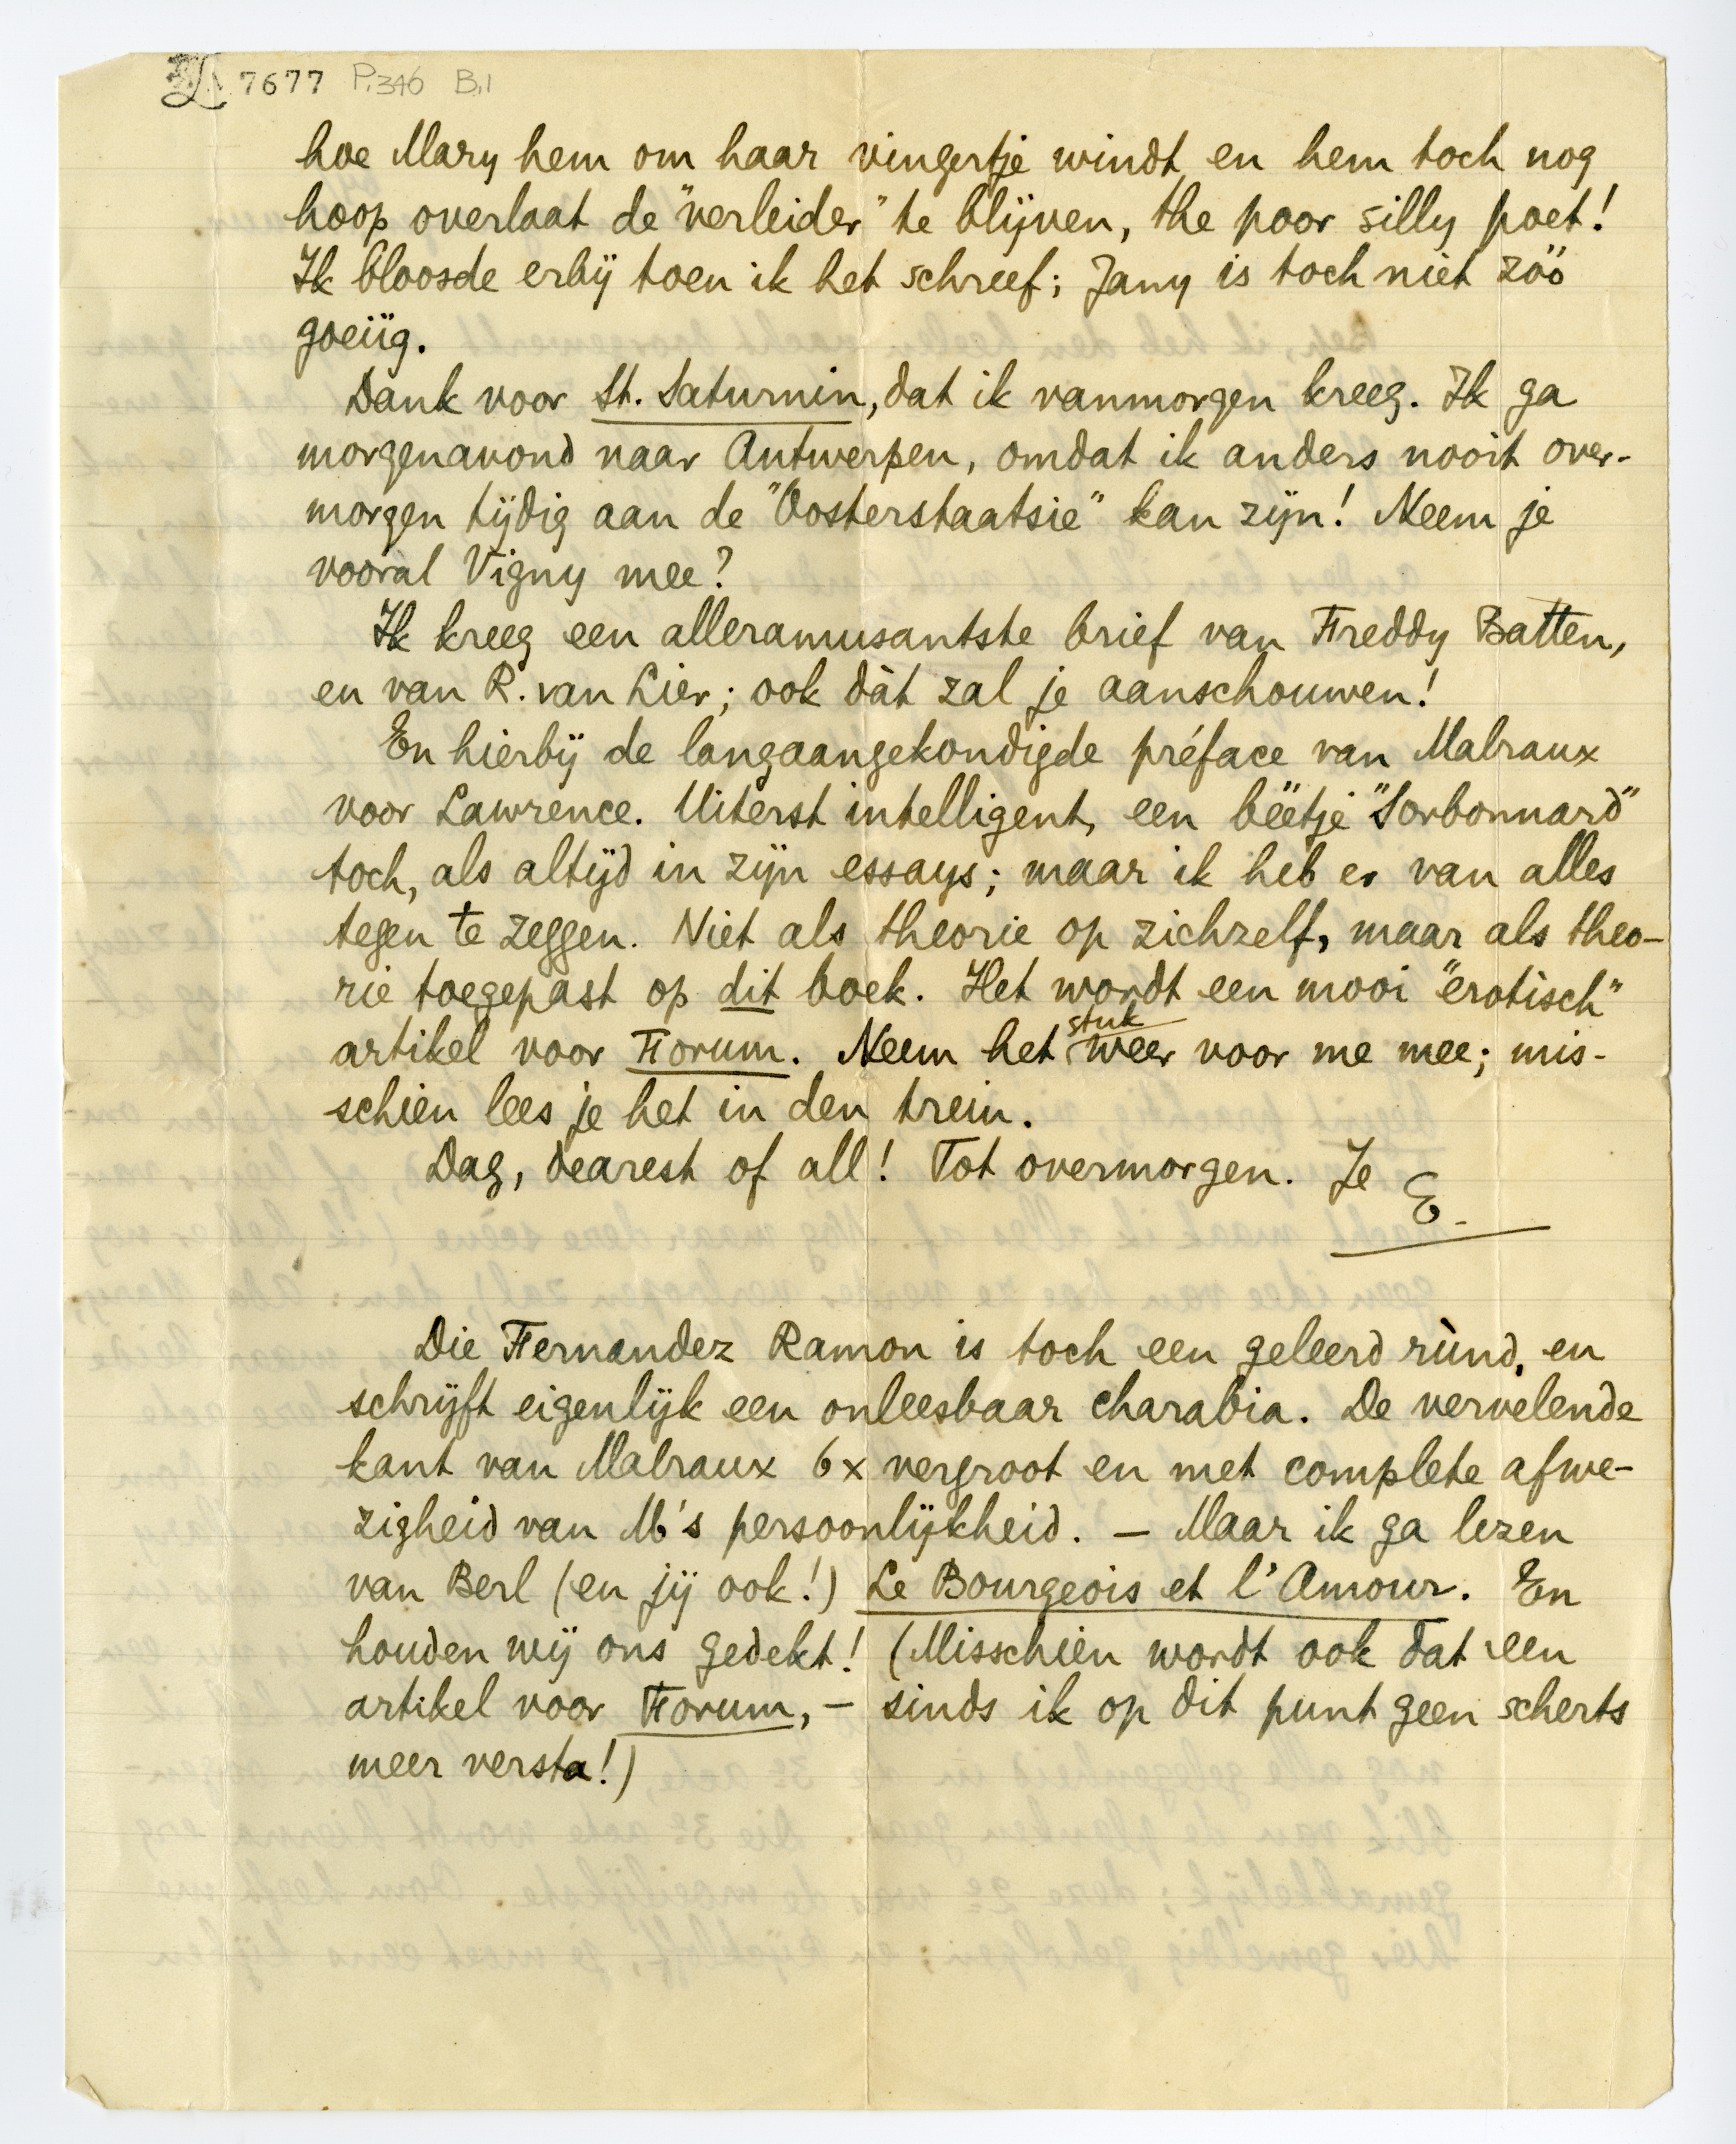 7677 P.346 B.1
hoe Mary hem om haar vingertje windt en hem toch nog
hoop overlaat de "verleider" te blijven, the poor silly poet!
Ik bloosde erbij toen ik het schreef; Jany is toch niet zóó
goeiïg.
Dank voor St. Saturnin, dat ik vanmorgen kreeg. Ik ga
morgenavond naar Antwerpen, omdat ik anders nooit over-
morgen tijdig aan de "Oosterstaatsie" kan zijn! Neem je
vooral Vigny mee?
Ik kreeg een alleramusantste brief van Freddy Batten,
en van R. van Lier; ook dàt zal je aanschouwen!
En hierbij de langaangekondigde préface van Malraux
voor Lawrence. Uiterst intelligent, een béétje "Sorbonnard"
toch, als altijd in zijn essays; maar ik heb er van alles
tegen te zeggen. Niet als theorie op zichzelf, maar als theo-
rie toegepast op dit boek. Het wordt een mooi "erotisch"
artikel voor Forum. Neem het stuk weer voor me mee; mis-
schien lees je het in den trein.
Dag, dearest of all! Tot overmorgen. Je E.
Die Fernandez Ramon is toch een geleerd rùnd, en
schrijft eigenlijk een onleesbaar charabia. De vervelende
kant van Malraux 6x vergroot en met complete afwe-
zigheid van M's persoonlijkheid. — Maar ik ga lezen
van Berl (en jij ook!) Le Bourgeois et l'Amour. En
houden wij ons gedekt! (Misschien wordt ook dat een
artikel voor Forum, — sinds ik op dit punt geen scherts
meer versta!)